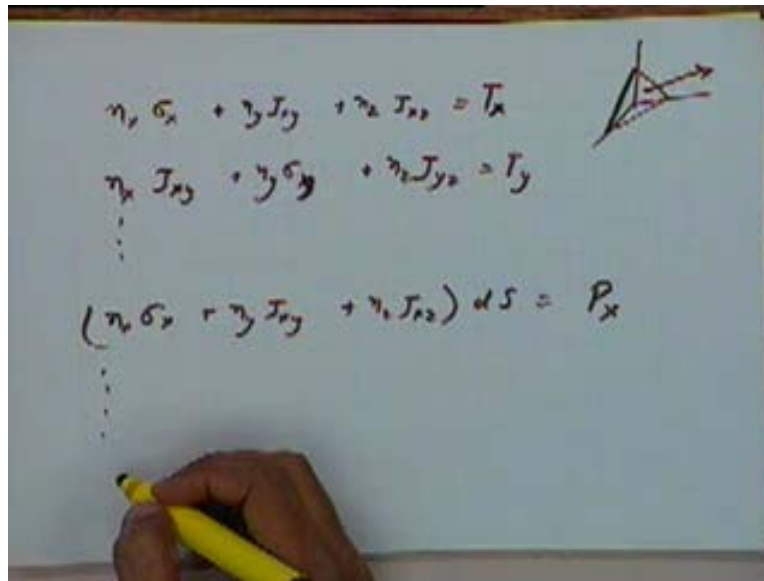 n_x σ_x + n_y J_xy + n_z J_xz = T_x
n_x J_xy + n_y σ_xy + n_z J_yz = T_y
(n_x σ_x + n_y J_xy + n_z J_xz) dS = P_x